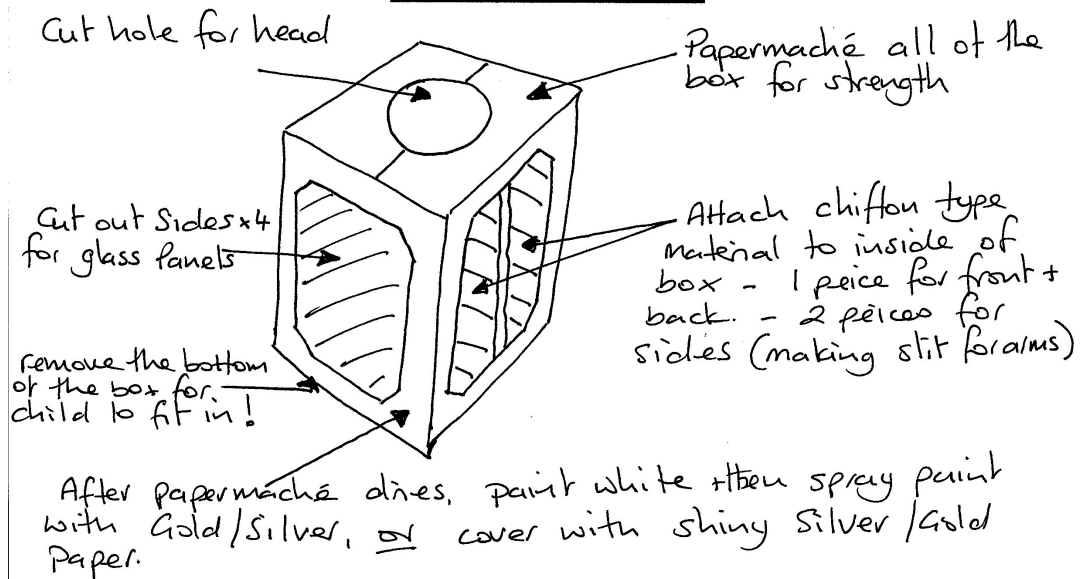 Cut hole for head
Papermaché all of the
box for strength
Cut out Sides x4
for glass Panels
Attach chiffon type
material to inside of
box - 1 peice for front +
back. - 2 peices for
sides (making slit for arms)
remove the bottom
of the box for
child to fit in!
After papermaché dries, paint white + then spray paint
with Gold/Silver, or cover with shiny Silver/Gold
Paper.